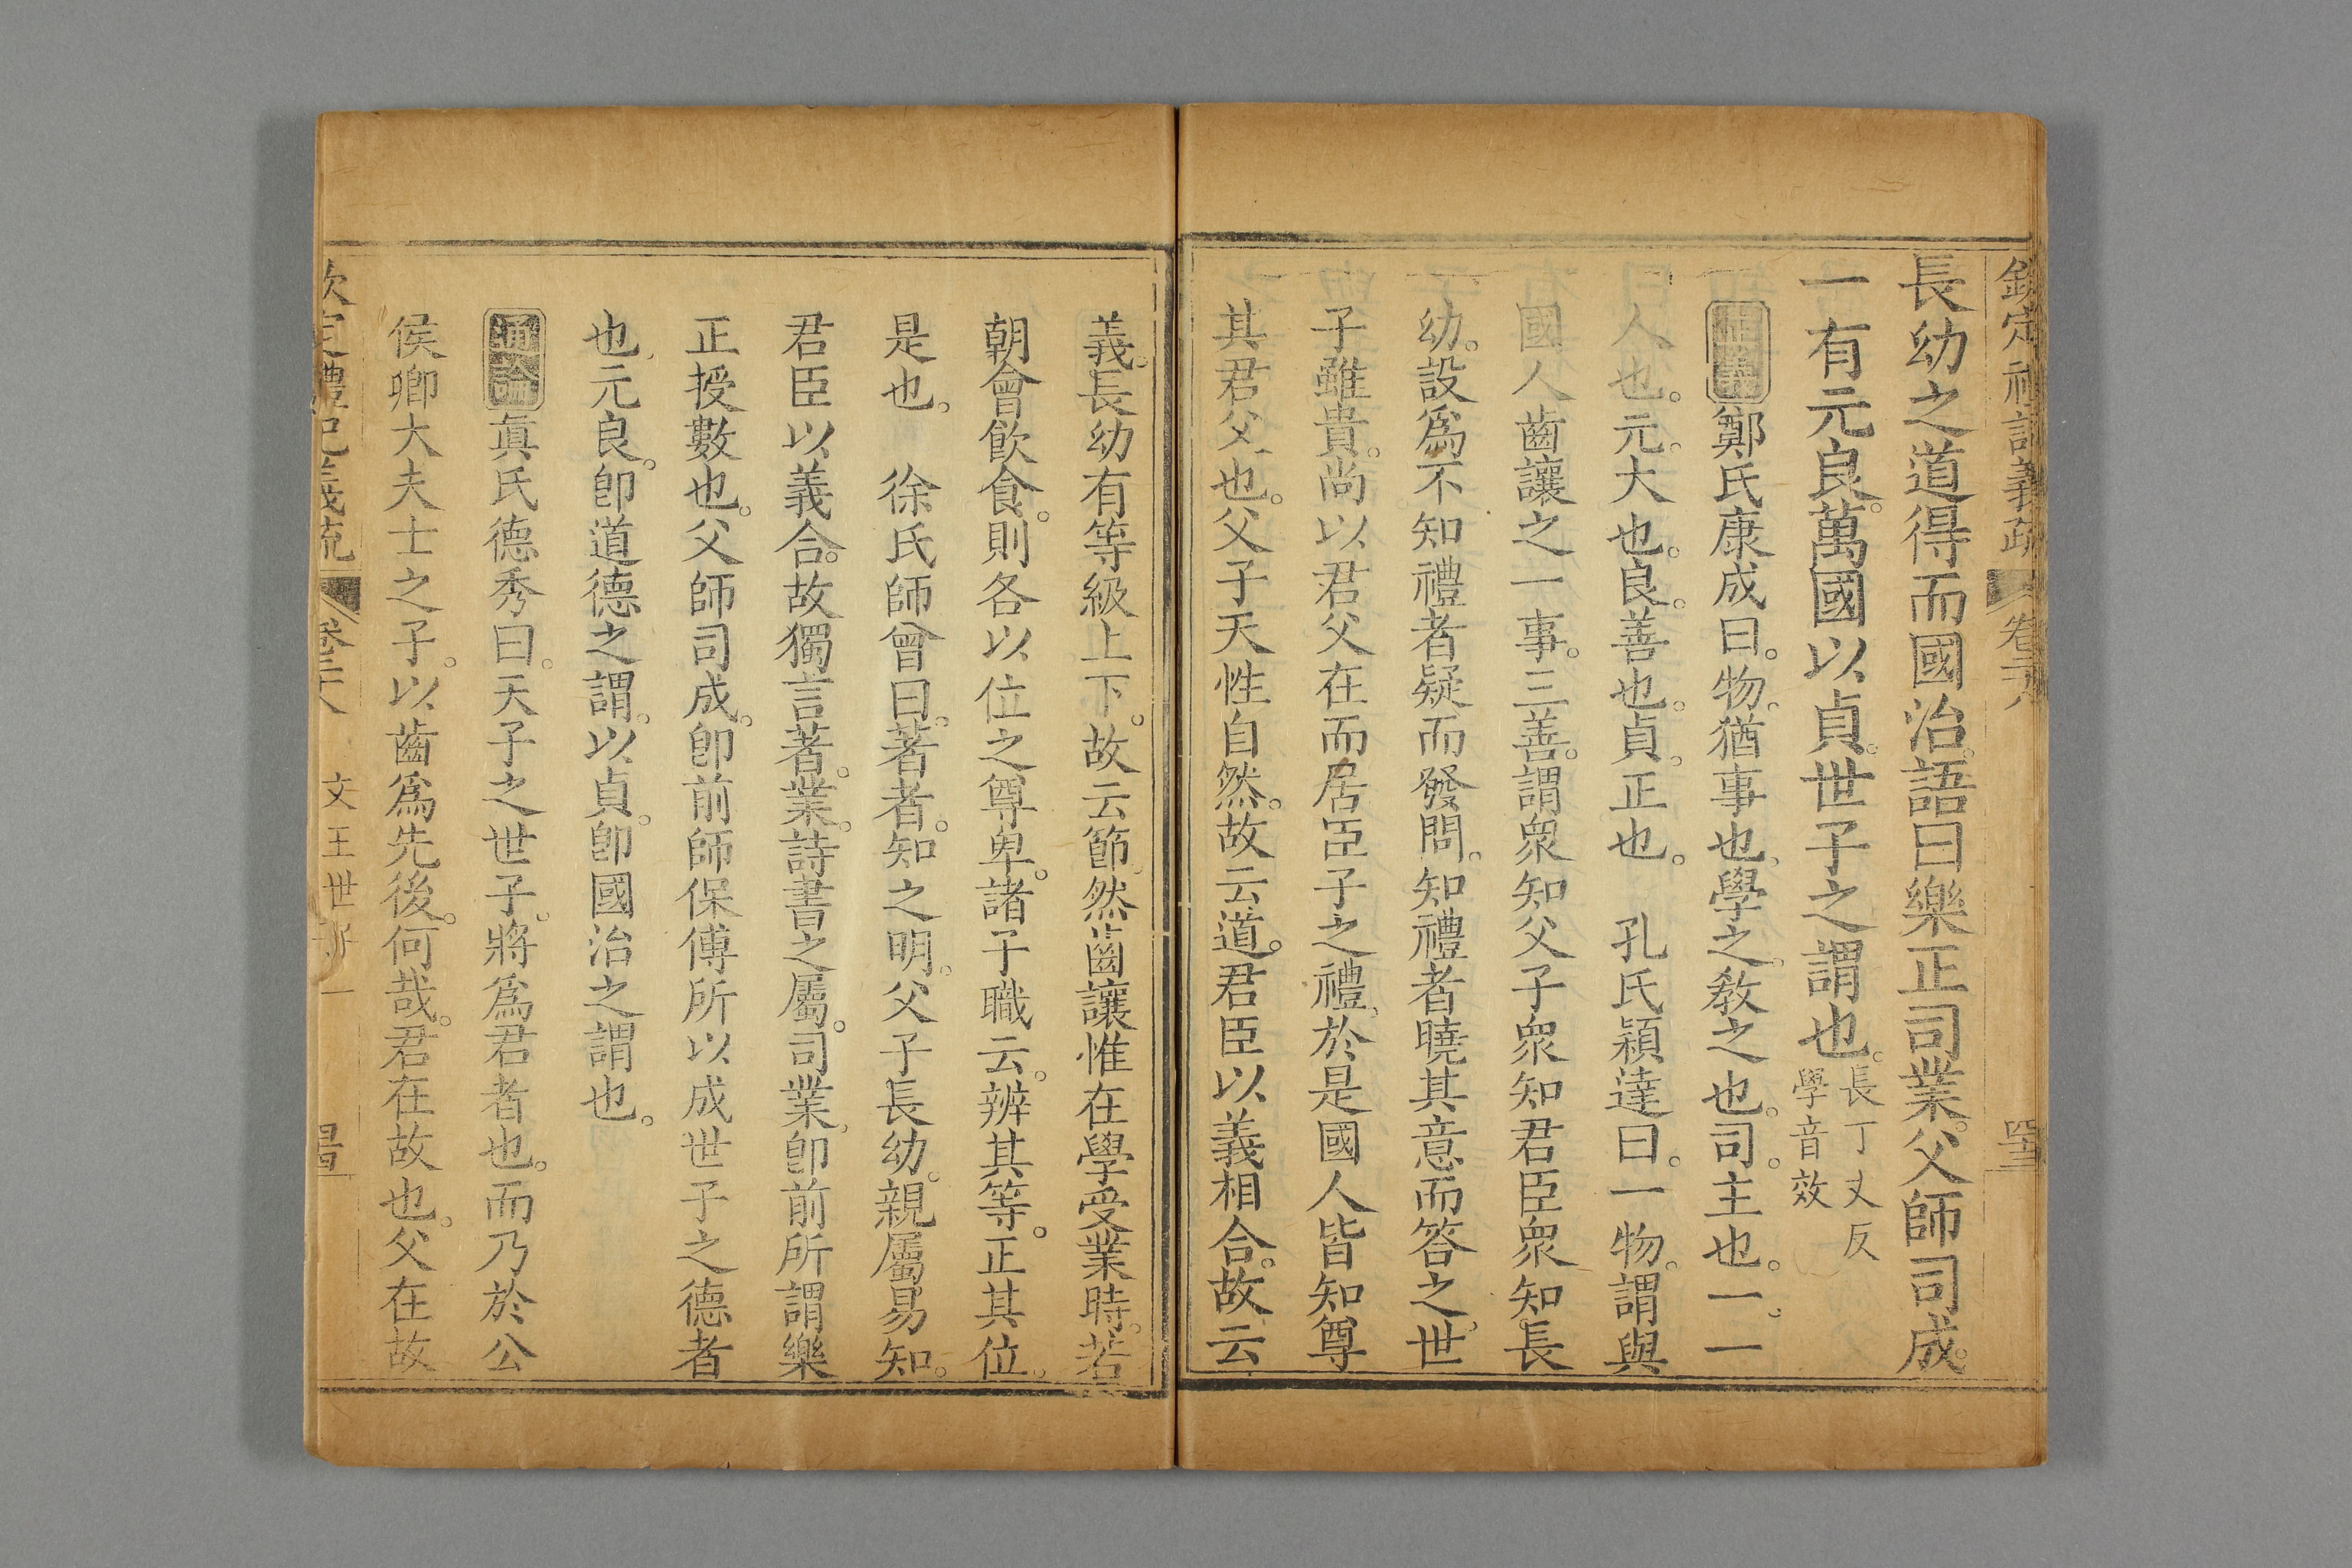 欽定禮記義疏 卷二十八 四十三
長幼之道得而國治。語曰樂正司業。父師司成。
一有元良。萬國以貞。世子之謂也。長丁丈反學音效
正義鄭氏康成曰。物。猶事也。學之。教之也。司。主也。一。一
人也。元。大也。良。善也。貞。正也。 孔氏穎達曰。一物。謂與
國人齒讓之一事。三善。謂衆知父子衆知君臣衆知長
幼。設爲不知禮者疑而發問。知禮者曉其意而答之。世
子雖貴。尚以君父在而居臣子之禮。於是國人皆知尊
其君父也。父子天性自然。故云道。君臣以義相合。故云
義。長幼有等級上下。故云節。然齒讓惟在學受業時。若
朝會飲食。則各以位之尊卑。諸子職云。辨其等。正其位。
是也。 徐氏師曾曰。著者。知之明。父子長幼。親屬易知。
君臣以義合。故獨言著。業。詩書之屬。司業。卽前所謂樂
正授數也。父師司成。卽前師保傅所以成世子之德者
也。元良。卽道德之謂。以貞。卽國治之謂也。
通論眞氏德秀曰。天子之世子。將爲君者也。而乃於公
侯卿大夫士之子。以齒爲先後。何哉。君在故也。父在故
欽定禮記義疏 卷二十八 文王世子